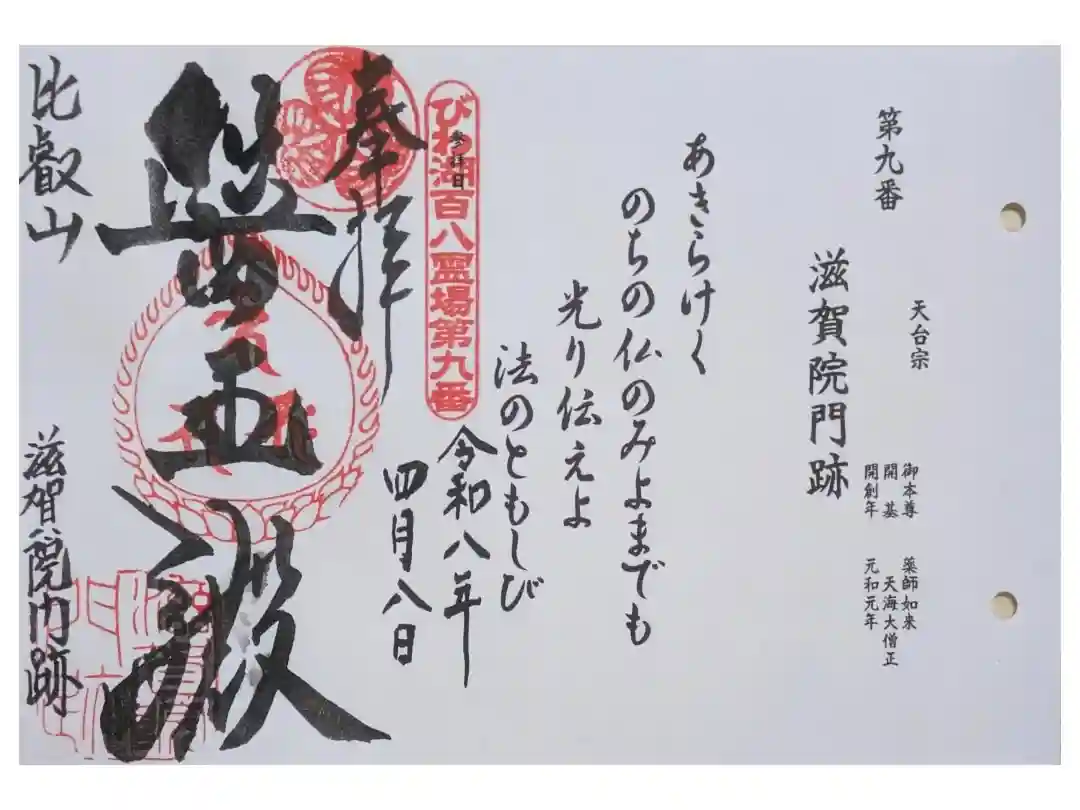 第九番
天台宗
滋賀院門跡
御本尊 薬師如来
開基 天海大僧正
開創年 元和元年
あきらけく
のちの仏のみよまでも
光り伝えよ
法のともしび
びわ湖百八霊場第九番
参拝日
令和八年
四月八日
奉拝
醫王殿
比叡山
滋賀院門跡